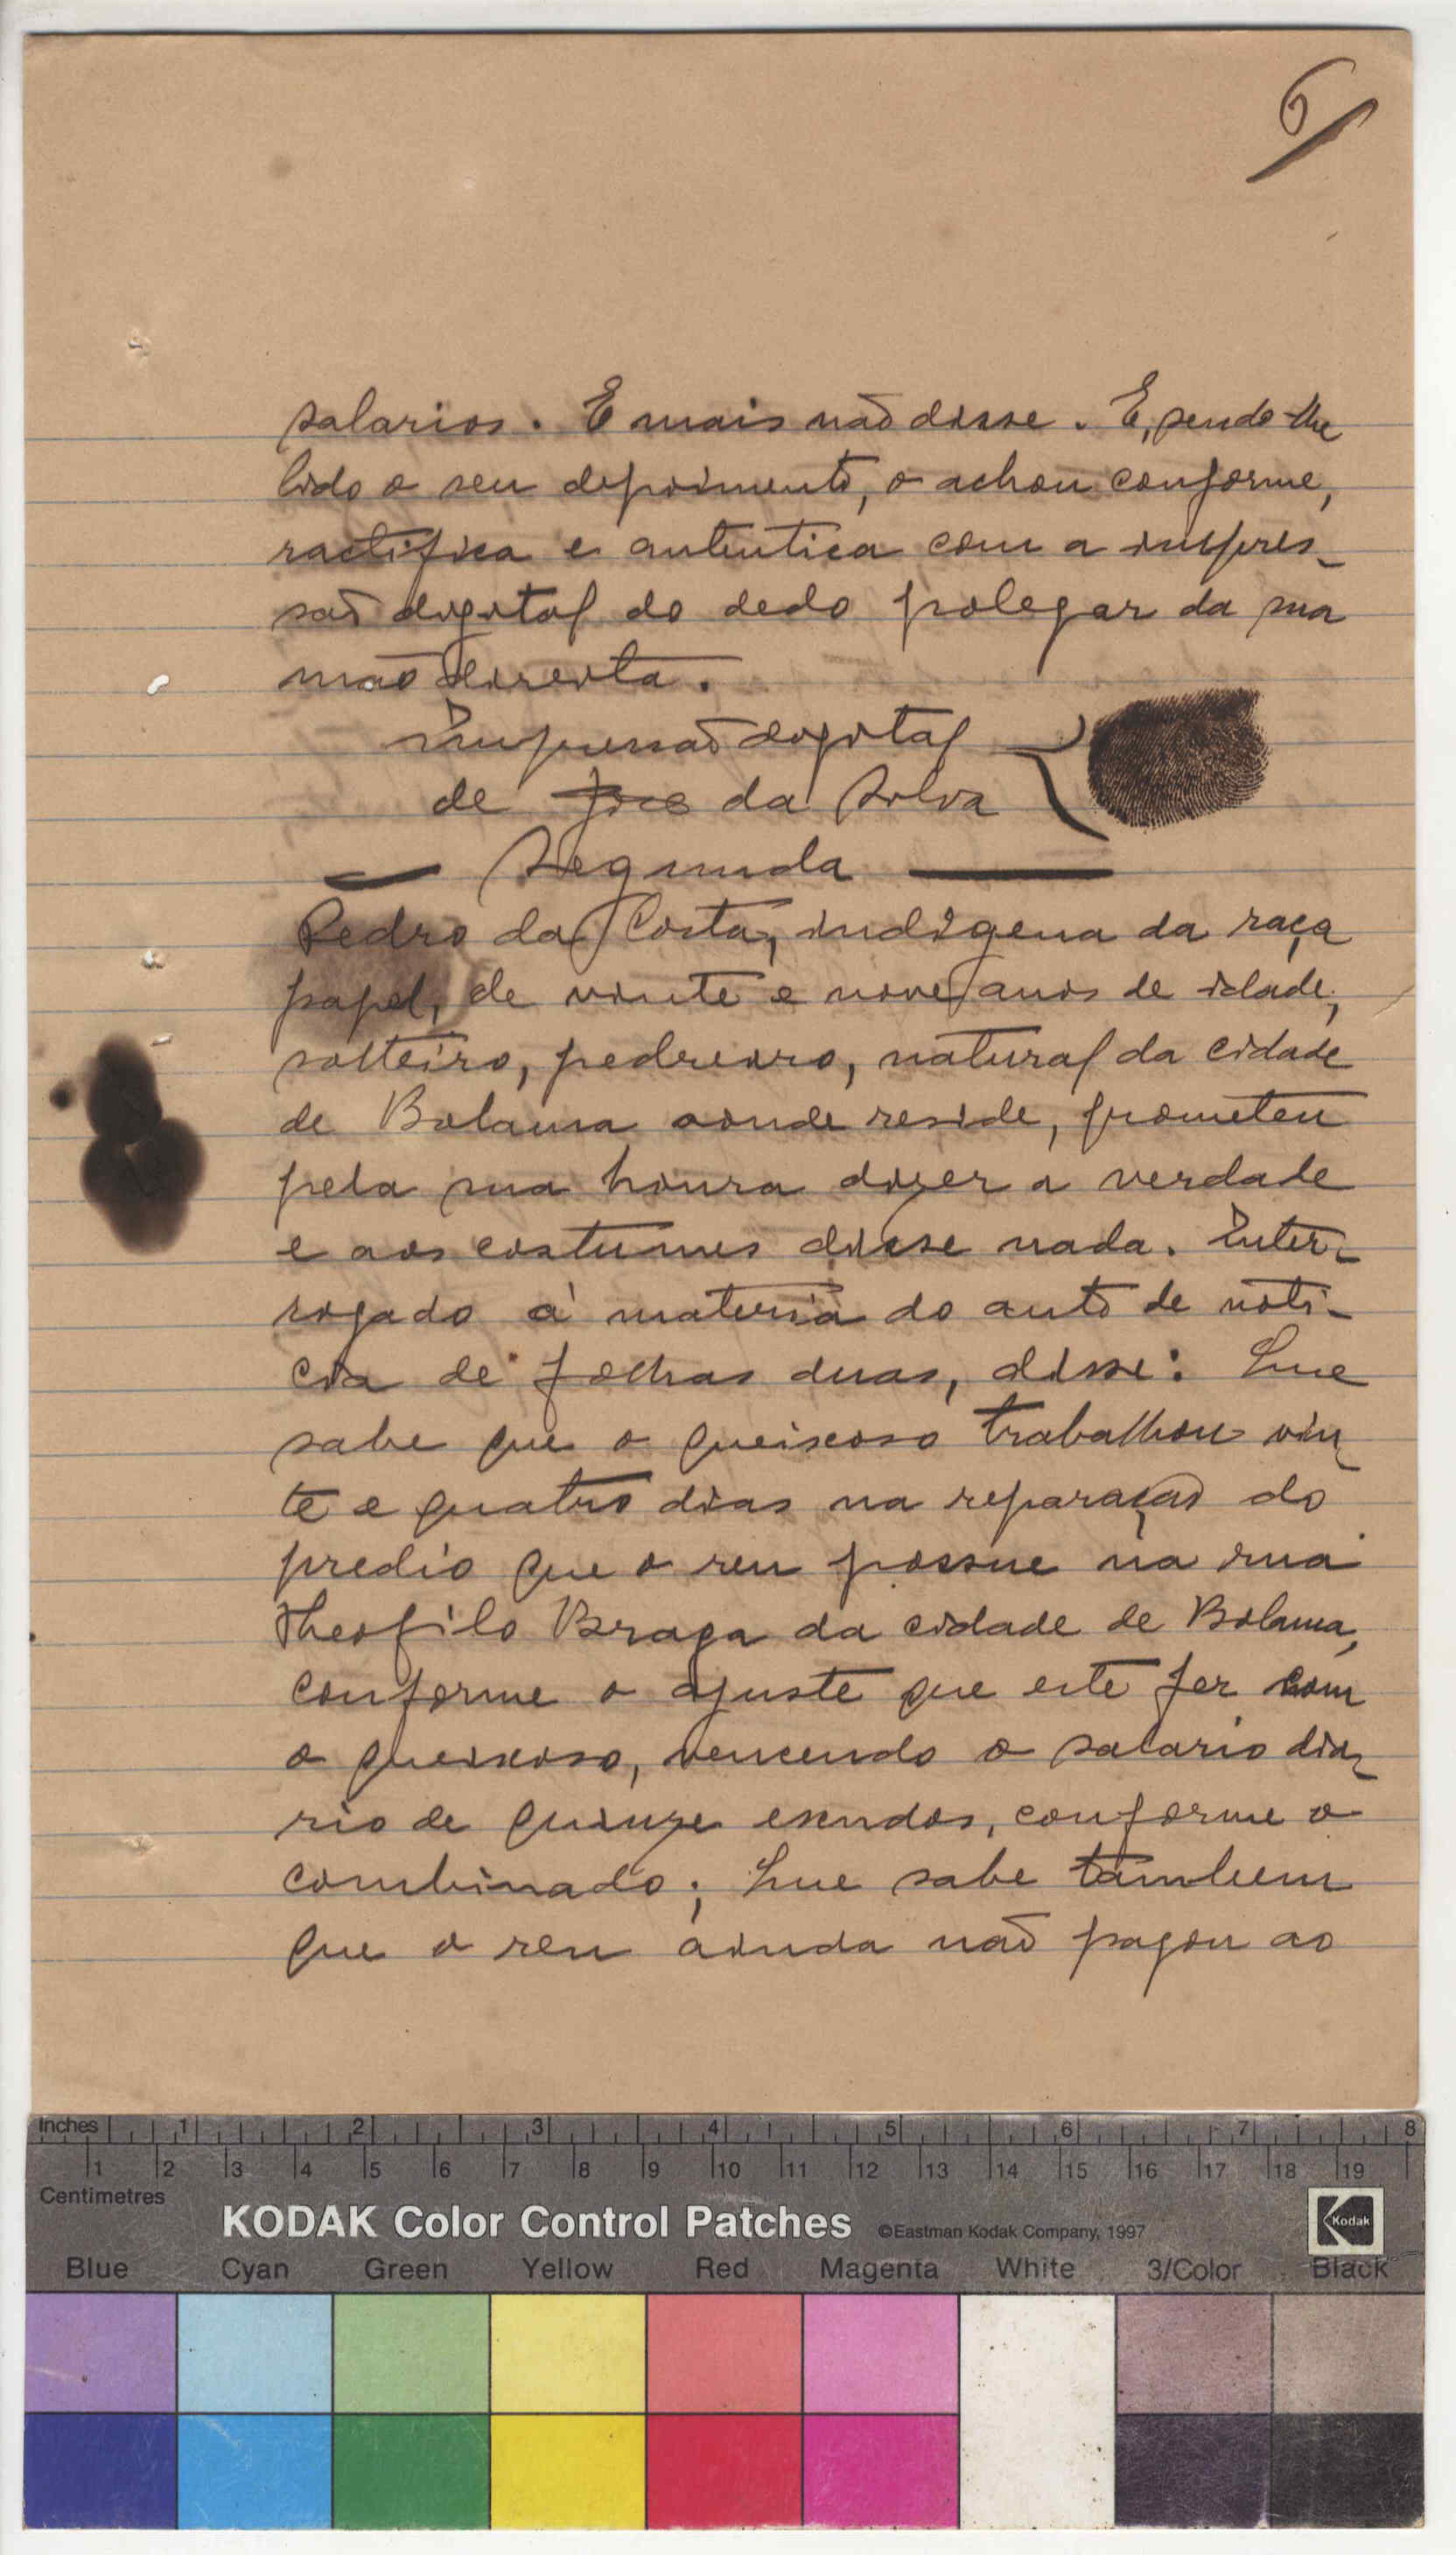 6
salarios. E mais não disse. E, sendo-lhe
lido o seu depoimento, o achou conforme,
ractifica e autentica com a impres-
são digital do dedo polegar da sua
mão direita.
Impressão digital
de José da Silva
Segunda
Pedro da Costa, indigena da raça
papel, de vinte e nove anos de idade,
solteiro, pedreiro, natural da cidade
de Bolama aonde reside, prometeu
pela sua honra dizer a verdade
e aos costumes disse nada. Inter-
rogado á materia do auto de noti-
cia de folhas duas, disse: Que
sabe que o queixoso trabalhou vin-
te e quatro dias na reparação do
predio que o reu possue na rua
Theofilo Braga da cidade de Bolama,
conforme o ajuste que este fez com
o queixoso, vencendo o salario diá-
rio de quinze escudos, conforme o
combinado; Que sabe tambem
que o reu ainda não pagou ao
Inches 1 2 3 4 5 6 7 8
1 2 3 4 5 6 7 8 9 10 11 12 13 14 15 16 17 18 19
Centimetres
KODAK Color Control Patches ©Eastman Kodak Company, 1997 Kodak
Blue Cyan Green Yellow Red Magenta White 3/Color Black